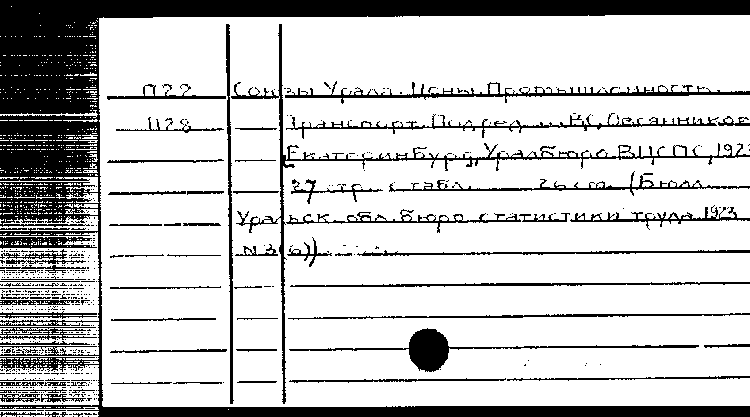 П22 Союзы Урала. Цены. Промышленность.
1128 Транспорт. Под ред. ... В.С. Овсянников
[Екатеринбург], Уралбюро ВЦСПС, 1923
27 стр. с табл. 26 см. (Бюлл.
Уральск. обл. бюро статистики труда 1923
N3(6))